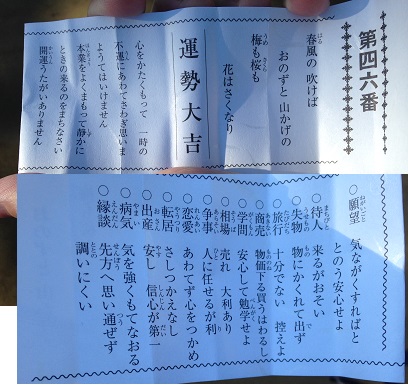 第四六番
春風の 吹けば
おのずと 山かげの
梅も桜も
花はさくなり
運勢大吉
心をかたくもって 一時の
不運にあわてさわぎ思いま
ようてはいけません
本業をよくまもって静かに
ときの来るのをまちなさい
開運うたがいありません
○願望 気ながくすればと
とのう安心せよ
○待人 来るがおそい
○失物 物にかくれて出ず
○旅行 十分でない 控えよ
○商売 物価下る買うはわるし
○学問 安心して勉学せよ
○相場 売れ 大利あり
○争事 人に任せるが利
○恋愛 あわてず心をつかめ
○転居 さしつかえなし
○出産 安し 信心が第一
○病気 気を強くもてなおる
○縁談 先方へ思い通ぜず
調いにくい